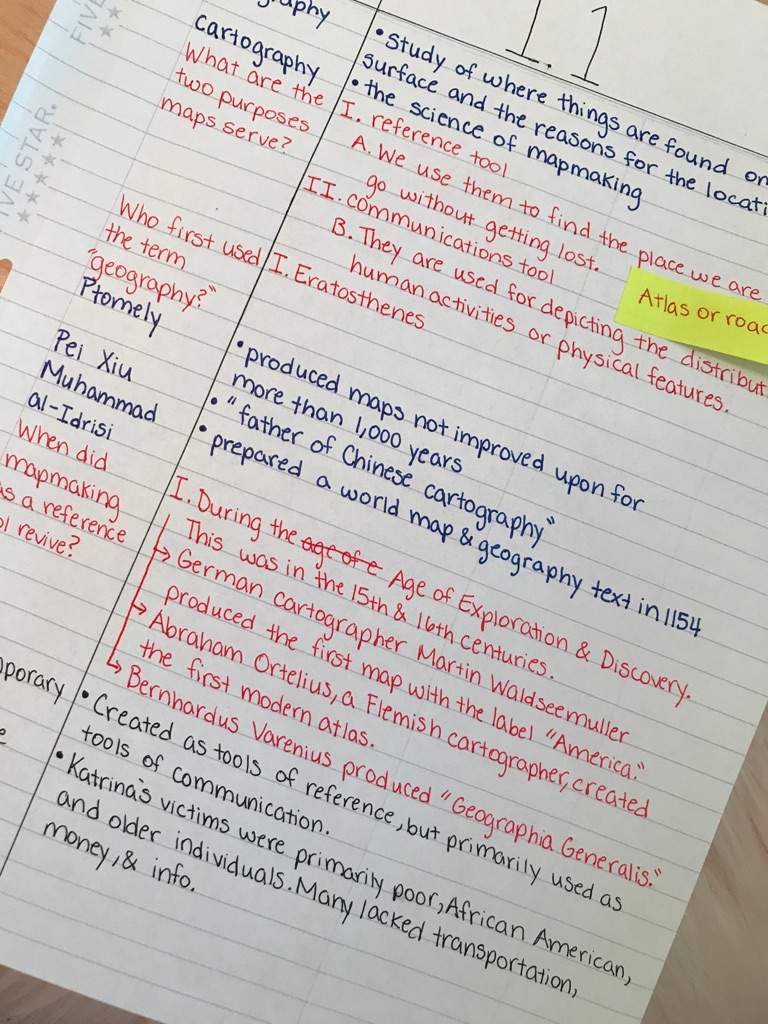 FIVE
FIVE STAR.
1.1
Cartography
What are the
two purposes
maps serve?
Who first used
the term
"geography?"
Ptomely
Pei Xiu
Muhammad
al-Idrisi
When did
mapmaking
as a reference
revive?
• Study of where things are found on
surface and the reasons for the
• the science of mapmaking
I. reference tool
A. We use them to find the place we are
go without getting lost.
II. communications tool
B. They are used for depicting the
human activities or physical features.
Atlas or
I. Eratosthenes
• produced maps not improved upon for
more than 1,000 years
• "father of Chinese cartography"
• prepared a world map & geography text in 1154
I. During the age of e Age of Exploration & Discovery.
This was in the 15th & 16th centuries.
→ German cartographer Martin Waldseemuller
produced the first map with the label "America."
→ Abraham Ortelius, a Flemish cartographer, created
the first modern atlas.
→ Bernhardus Varenius produced "Geographia Generalis."
• Created as tools of reference, but primarily used as
tools of communication.
• Katrina's victims were primarily poor, African American,
and older individuals. Many lacked transportation,
money, & info.